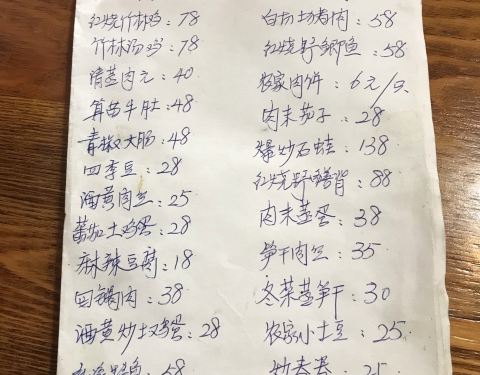 红烧竹林鸡：78
竹林汤鸡：78
清蒸肉元：40
笋苗牛肚：48
青椒大肠：48
四季豆：28
酒黄肉丝：25
蕃茄土鸡蛋：28
麻辣豆腐：18
回锅肉：38
酒黄炒土鸡蛋：28
：58
白切土猪肉：58
红烧野鲫鱼：58
农家肉饼：6元/只
肉末茄子：28
爆炒石蛙：138
红烧野鳝背：88
肉末蒸蛋：38
笋干肉丝：35
冬菜蒸笋干：30
农家小土豆：25
炒春卷：25